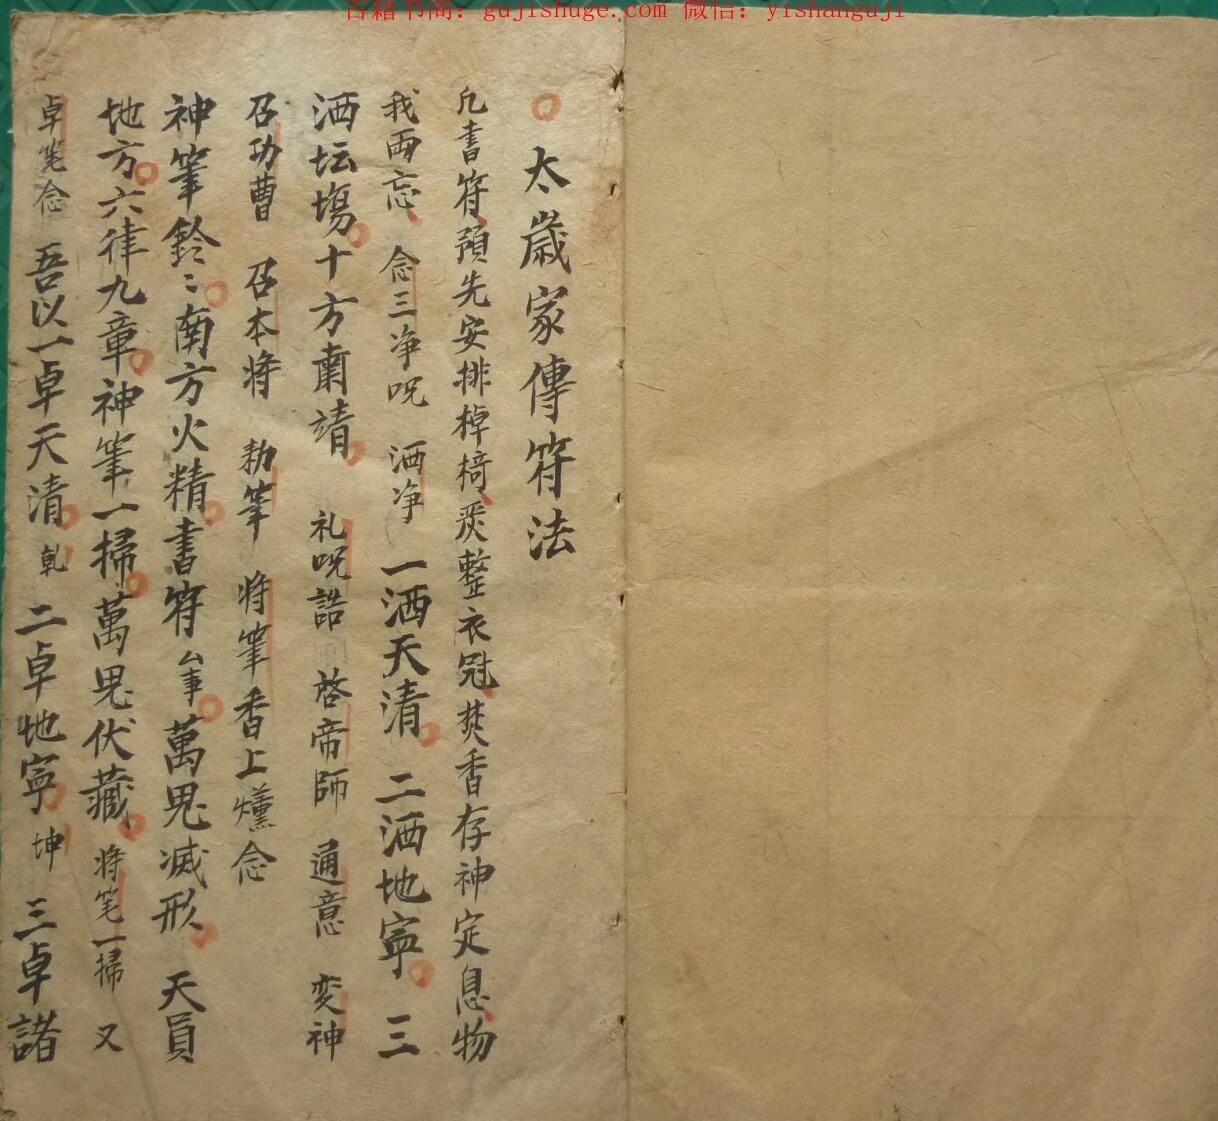 古籍书阁：gujishuge.com 微信：yishanguji
太歳家傳符法
凡書符預先安排棹椅炭整衣冠焚香存神定息物
我両忘 念三净呪 洒净 一洒天清 二洒地寧 三
洒坛塲十方肅靖 礼呪誥 啓帝師 通意 变神
召功曹 召本将 勅筆 将筆香上燻念
神筆鈴〻南方火精書符 萬鬼滅形 天員
地方六律九章神筆一掃萬鬼伏藏 将笔一掃 又
卓笔念 吾以一卓天清 乹 二卓地寧 坤 三卓諸